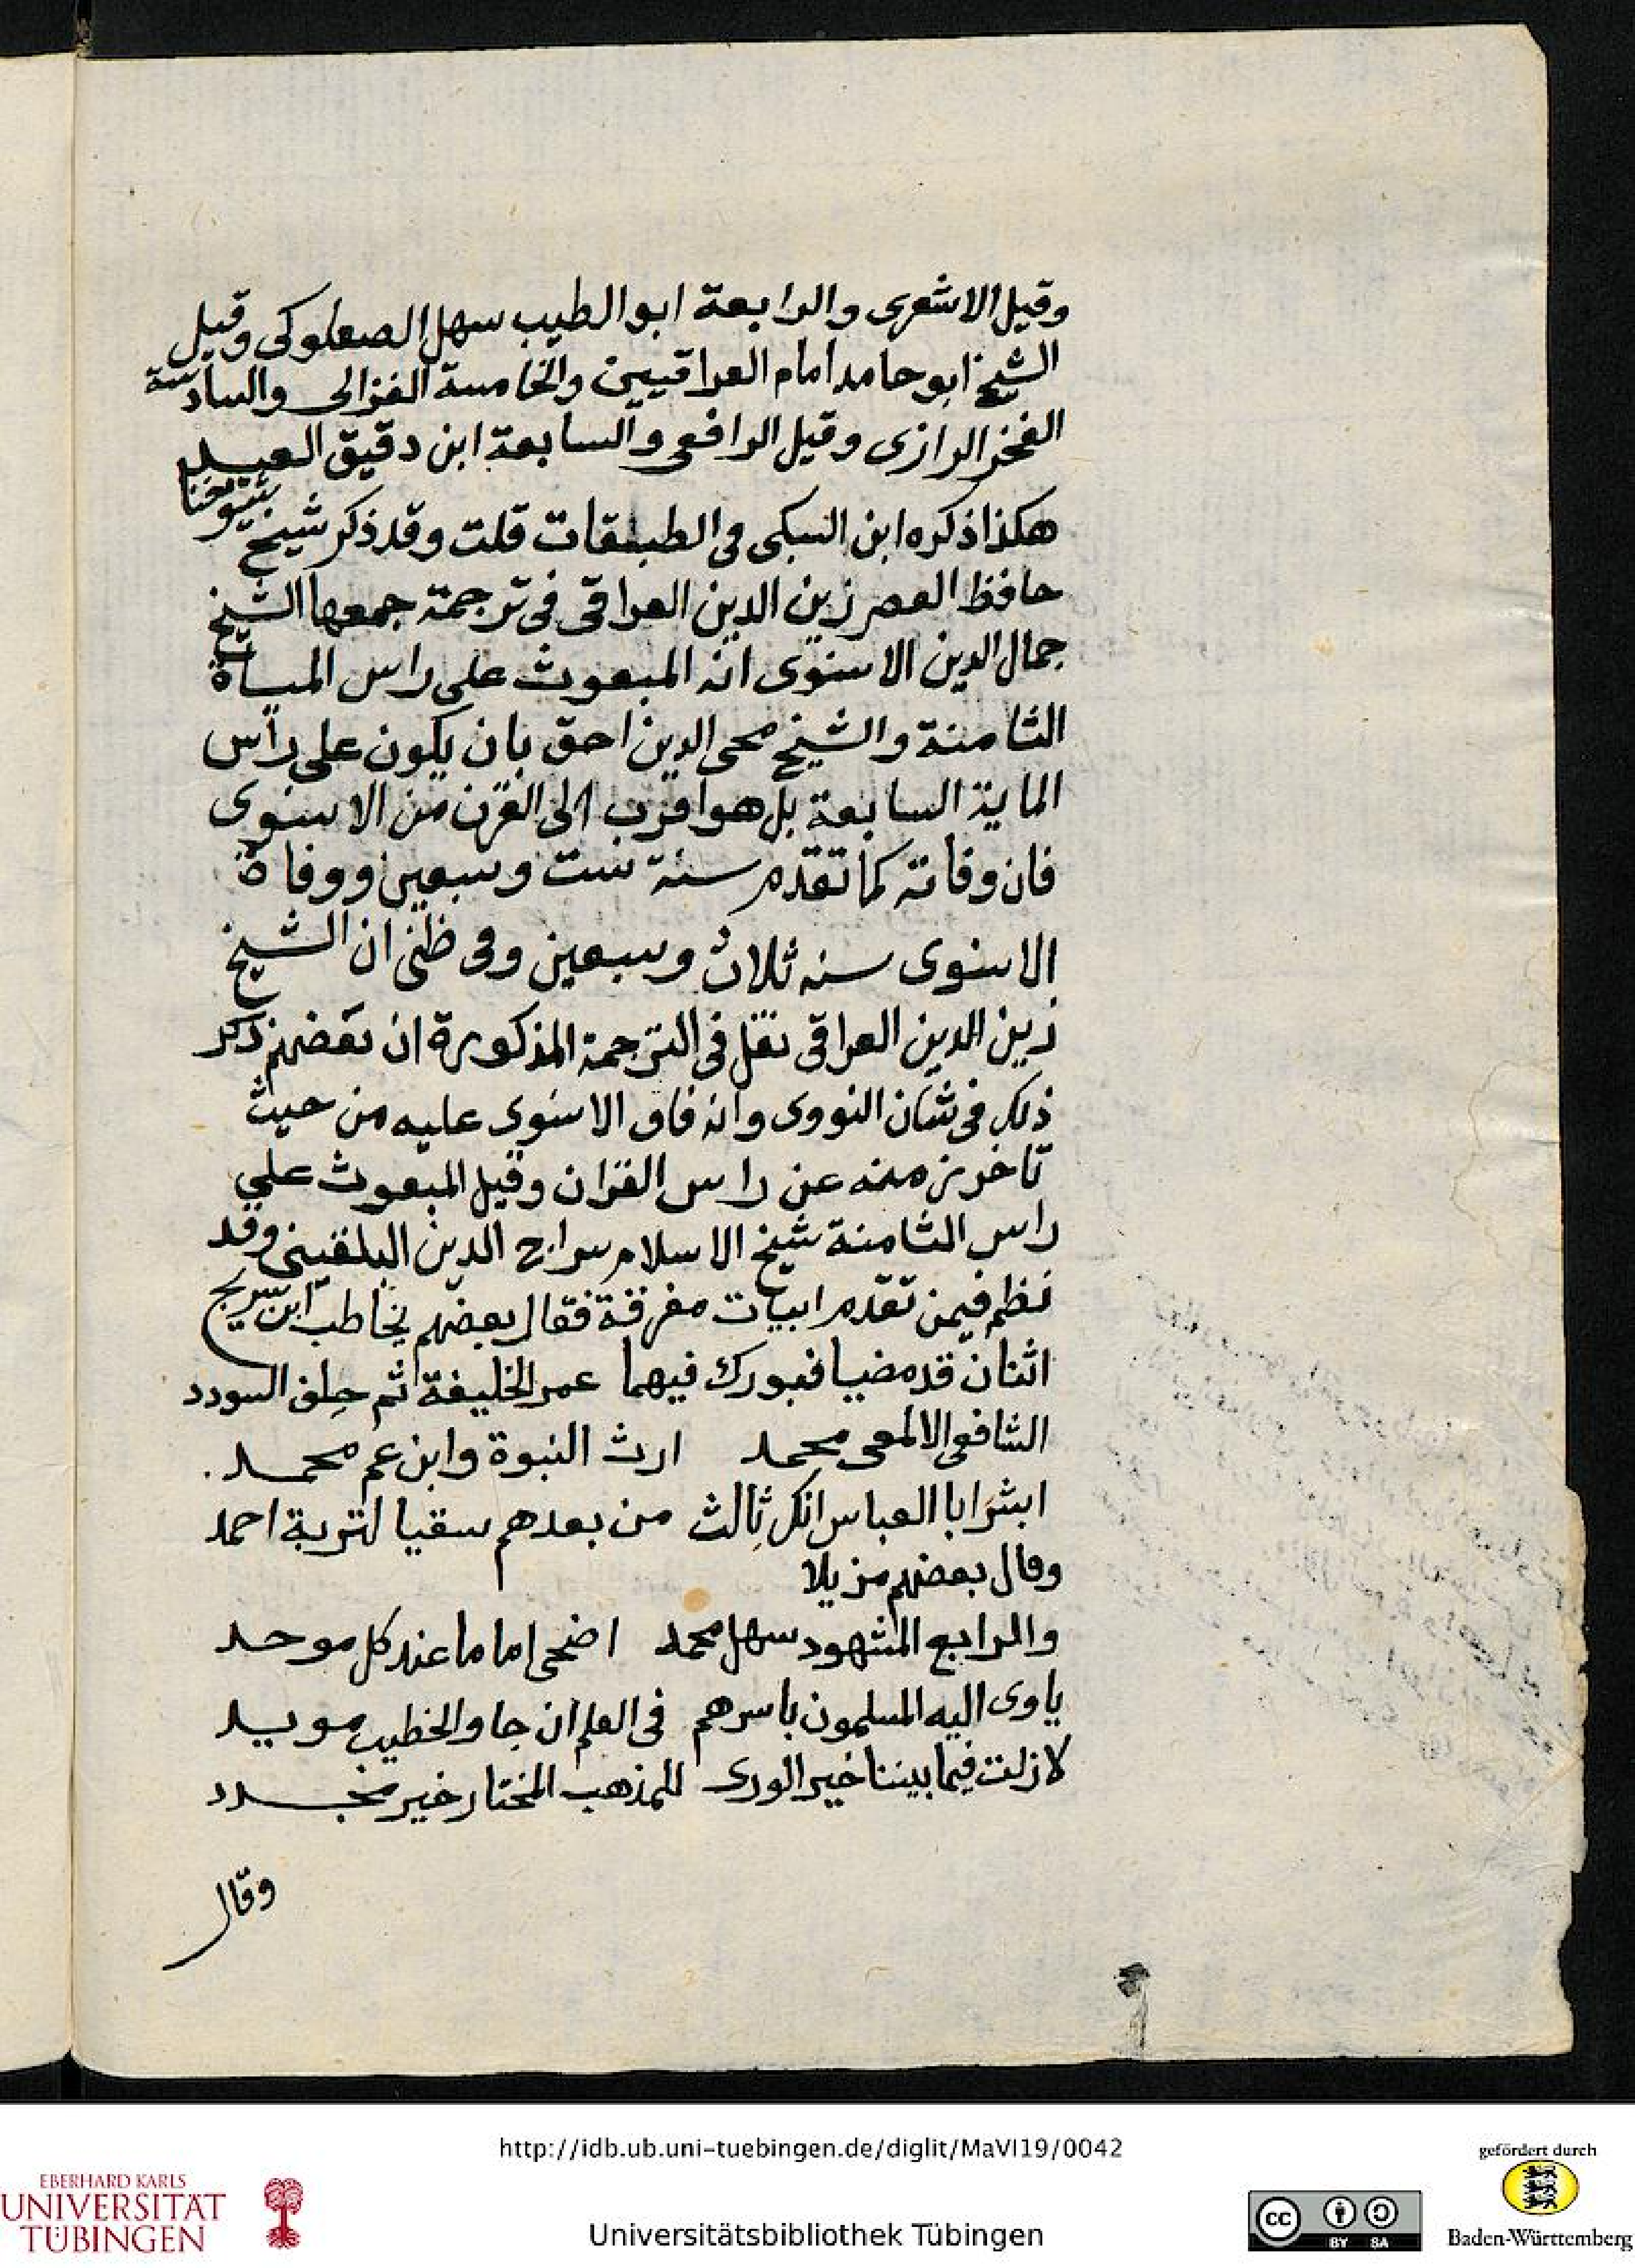 وقيل الاشعرى والرابعة ابو الطيب سهل الصعلوكى وقيل
الشيخ ابو حامد امام العراقيين والخامسة الغزالى والسادسة
الفخر الرازى وقيل الرافعى والسابعة ابن دقيق العيد
هكذا ذكره ابن السبكى فى الطبقات قلت وقد ذكر شيخ شيوخنا
حافظ العصر زين الدين العراقى فى ترجمة جمعها الشيخ
جمال الدين الاسنوى انه المبعوث على راس المياة
الثامنة والشيخ محى الدين احق بان يكون على راس
الماية السابعة بل هو اقرب الى القرن من الاسنوى
فان وفاته كما تقدم سنة ست وسبعين ووفاة
الاسنوى سنه ثلاث وسبعين وفى ظنى ان الشيخ
زين الدين العراقى نقل فى الترجمة المذكورة ان بعضهم ذكر
ذلك فى شان النووى وانه فاق الاسنوى عليه من حيث
تاخر زمنه عن راس القران وقيل المبعوث على
راس الثامنة شيخ الاسلام سراج الدين البلقينى وقد
نظم فيمن تقدم ابيات مفرقة فقال بعضهم يخاطب ابن سريج
اثنان قد مضيا فبورك فيهما عمر الخليفة ثم حلف السودد
الشافعى الالمعى محمد ارث النبوة وابن عم محمد
ابشر ابا العباس انك ثالث من بعدهم سقيا لتربة احمد
وقال بعضهم مزيلا
والرابع المشهود سهل محمد اضحى اماما عند كل موحد
ياوى اليه المسلمون باسرهم فى العلم ان جاو الخطيب مويد
لا زلت فيما بيننا خير الورى للمذهب المختار خير مجدد
وقال
http://idb.ub.uni-tuebingen.de/diglit/MaVI19/0042
gefördert durch
EBERHARD KARLS
UNIVERSITÄT
TÜBINGEN
Universitätsbibliothek Tübingen
cc BY SA
Baden-Württemberg